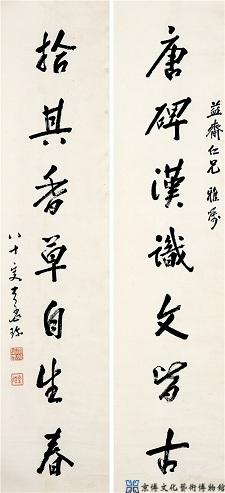 益齋仁兄 雅属
唐碑漢識文皆古
拾其香草自生春
八十叟
京博文化藝術博物館